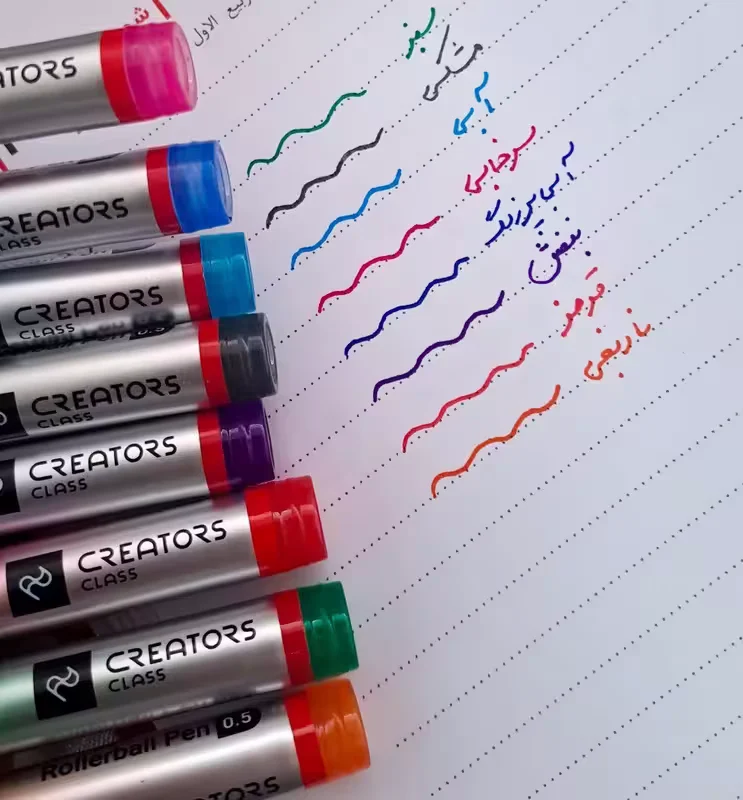 ربيع الأول
سبز
مشکی
آبی
سرخابی
آبی پررنگ
بنفش
قرمز
نارنجی
CREATORS
CLASS
CREATORS
CLASS
CREATORS
CLASS
CREATORS
CLASS
CREATORS
CLASS
CREATORS
CLASS
Rollerball Pen 0.5